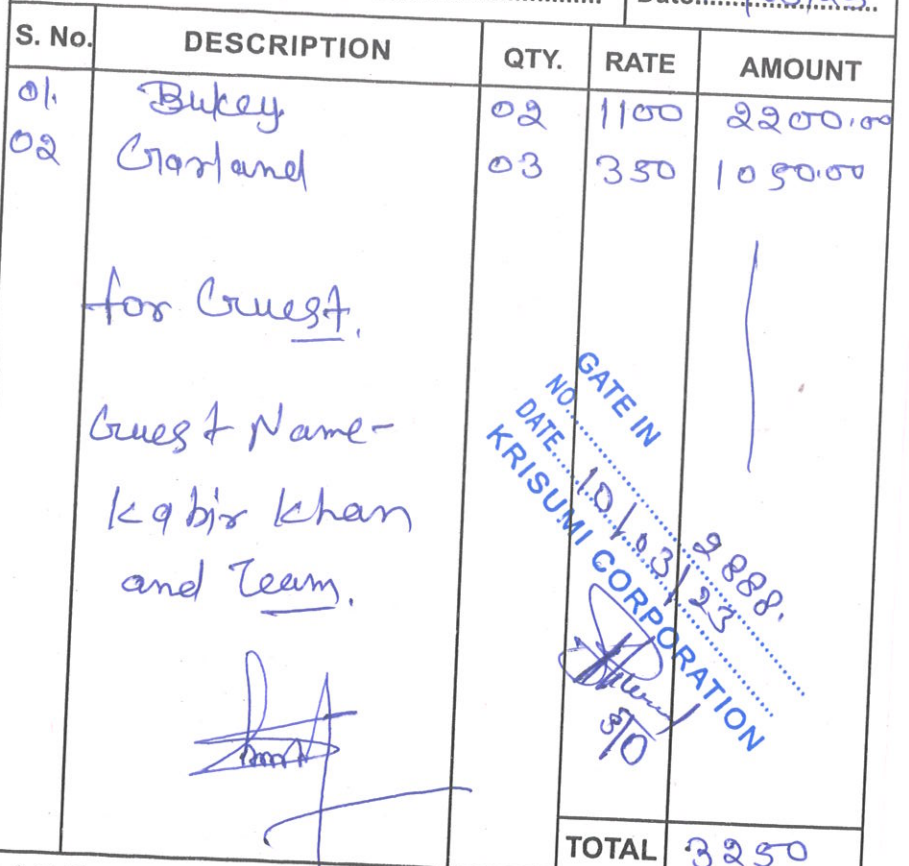 Date
S. No. DESCRIPTION QTY. RATE AMOUNT
01. Bukey 02 1100 2200.00
02 Garland 03 350 1050.00
for Guest.
Guest Name-
Kabir Khan
and Team.
GATE IN
NO. 2888.
DATE 10/03/23
KRISUMI CORPORATION
TOTAL 3250